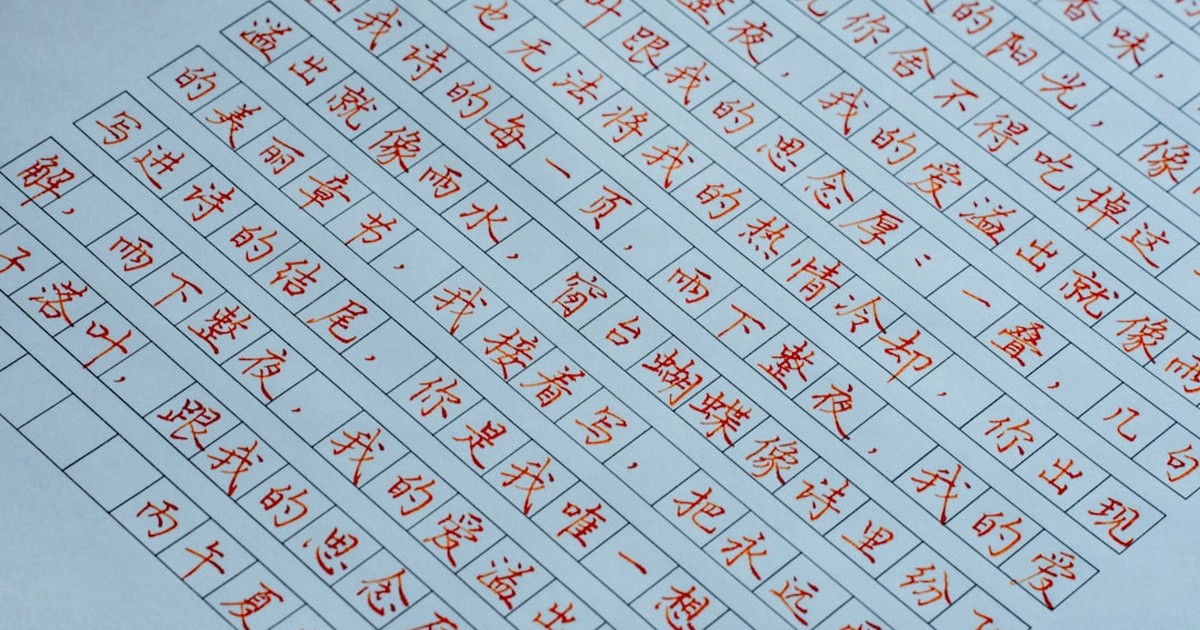 香味，
的阳光，像
你舍不得吃掉这
整夜，我的爱溢出就像雨
叶跟我的思念厚：一叠，几句
也无法将我的热情冷却，你出现
我诗的每一页，雨下整夜，我的爱
溢出就像雨水，窗台蝴蝶像诗里纷
的美丽章节，我接着写，把永远
写进诗的结尾，你是我唯一想
解，雨下整夜，我的爱溢出
子落叶，跟我的思念
丙午夏